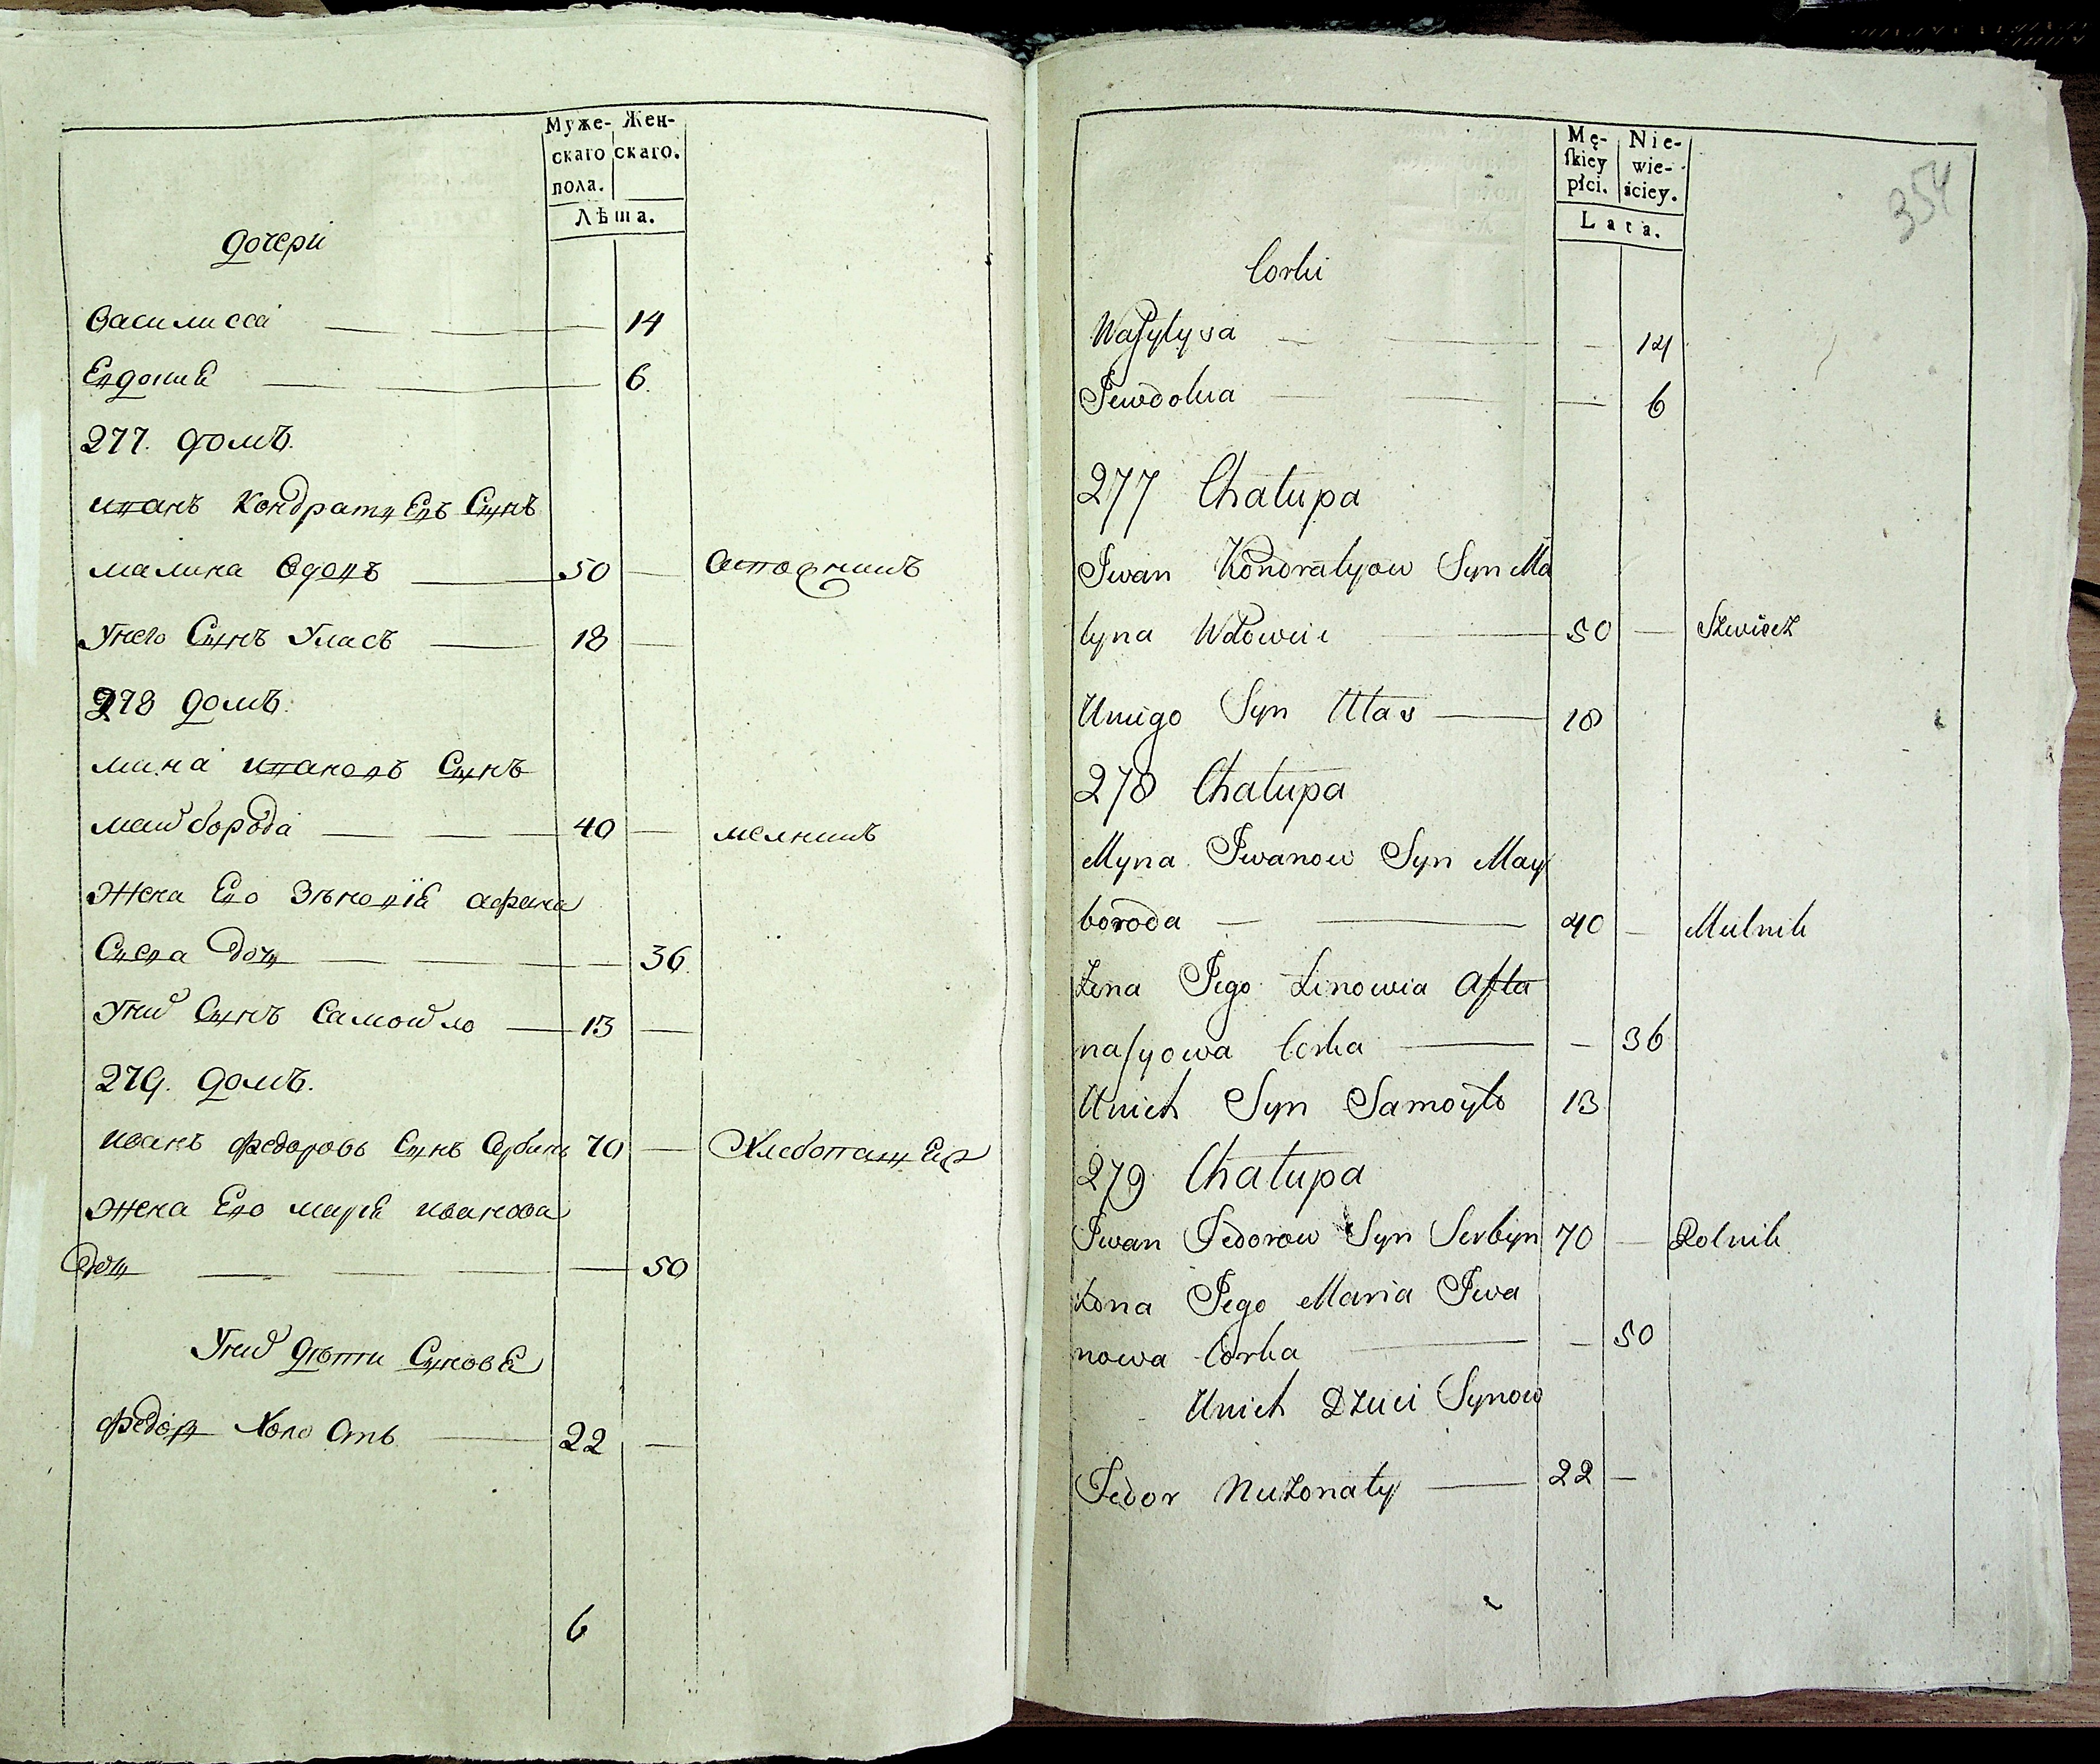 Муже- Жен-
скаго скаго.
пола.
Лѣта.
дочери
Василисса — 14
Евдокия — 6
277. домъ.
иванъ Кондратьевъ Сынъ
малина Вдовъ — 50 —
Унего Сынъ Уласъ — 18 —
278 домъ.
мина ивановъ Сынъ
майборода — 40 — мелникъ
жена Его Зѣновія афана
Сиева дочь — 36.
Уних Сынъ Самойло — 13 —
279. домъ.
иванъ федоровъ Сынъ Сербинъ 70 — Хлебопашец
жена Его мария иванова
дочь — 50
Уних дѣти Сыновья
федор Холостъ — 22 —
6
Mę- Nie-
ſkiey wie-
płci. ściey.
Lata.
354
Corki
Waſylysa — 14
Jewdokia — 6
277 Chałupa
Jwan Kondratyow Syn Ma
lyna Wdowiec — 50 — Szwiec
Uniego Syn Ułas — 18
278 Chałupa
Myna Jwanow Syn May
boroda — 40 — Mielnik
Żena Jego Zinowia Afta
naſyowa Corka — 36
Unich Syn Samoyło 13
279 Chałupa
Jwan Fedorow Syn Serbyn 70 — Rolnik
Żona Jego Maria Jwa
nowa Corka — 50
Unich Dzieci Synow
Fedor Nieżonaty — 22 —